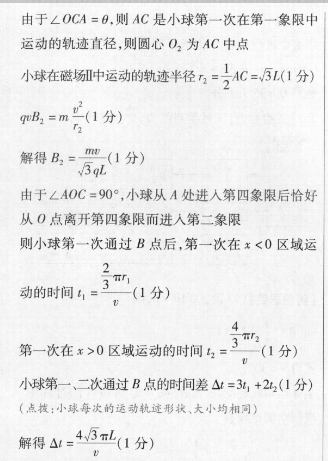 由于∠OCA=θ,则 AC 是小球第一次在第一象限中
运动的轨迹直径,则圆心 O₂ 为 AC 中点
小球在磁场Ⅱ中运动的轨迹半径 r₂=\frac{1}{2}AC=√3L(1 分)
qvB₂=m\frac{v²}{r₂}(1 分)
解得 B₂=\frac{mv}{√3qL}(1 分)
由于∠AOC=90°,小球从 A 处进入第四象限后恰好
从 O 点离开第四象限而进入第二象限
则小球第一次通过 B 点后,第一次在 x<0 区域运
动的时间 t₁=\frac{\frac{2}{3}πr₁}{v}(1 分)
第一次在 x>0 区域运动的时间 t₂=\frac{\frac{4}{3}πr₂}{v}(1 分)
小球第一、二次通过 B 点的时间差 Δt=3t₁+2t₂(1 分)
(点拨:小球每次的运动轨迹形状、大小均相同)
解得 Δt=\frac{4√3πL}{v}(1 分)